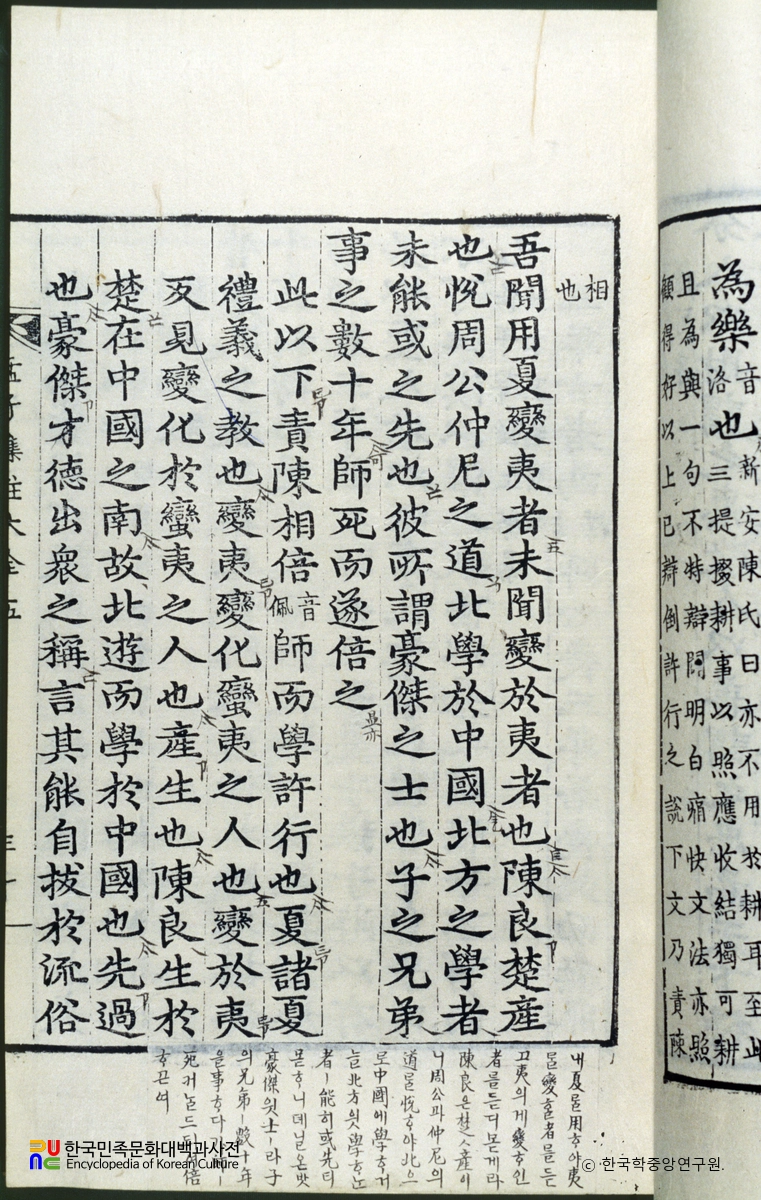 為樂音洛也新安陳氏曰亦不用於耕耳至此
三提掇耕事以照應收結獨可耕
且為與一句不特辯問明白痛快文法亦照
顧得好以上已辯倒許行之說下文乃責陳
相
也
吾聞用夏變夷者未聞變於夷者也陳良楚產
也悅周公仲尼之道北學於中國北方之學者
未能或之先也彼所謂豪傑之士也子之兄弟
事之數十年師死而遂倍之
此以下責陳相倍音佩師而學許行也夏諸夏
禮義之教也變夷變化蠻夷之人也變於夷
反見變化於蠻夷之人也產生也陳良生於
楚在中國之南故北遊而學於中國也先過
也豪傑才德出衆之稱言其能自拔於流俗
孟子集註大全 五
내夏를用ᄒᆞ야夷
를變ᄒᆞᆯ者를듣
고夷의게變ᄒᆞ인
者를듣디몯게라
陳良은楚ㅅ產이
니周公과仲尼의
道를悅ᄒᆞ야北으
로中國에學ᄒᆞ거
늘北方읫學ᄒᆞᄂᆞᆫ
者ㅣ能히或先티
몯ᄒᆞ니뎨닐온밧
豪傑읫士ㅣ라子
의兄弟ㅣ數十年
을事ᄒᆞ다가
死커늘드듸여倍
ᄒᆞ곤여
한국민족문화대백과사전
Encyclopedia of Korean Culture
ⓒ 한국학중앙연구원.